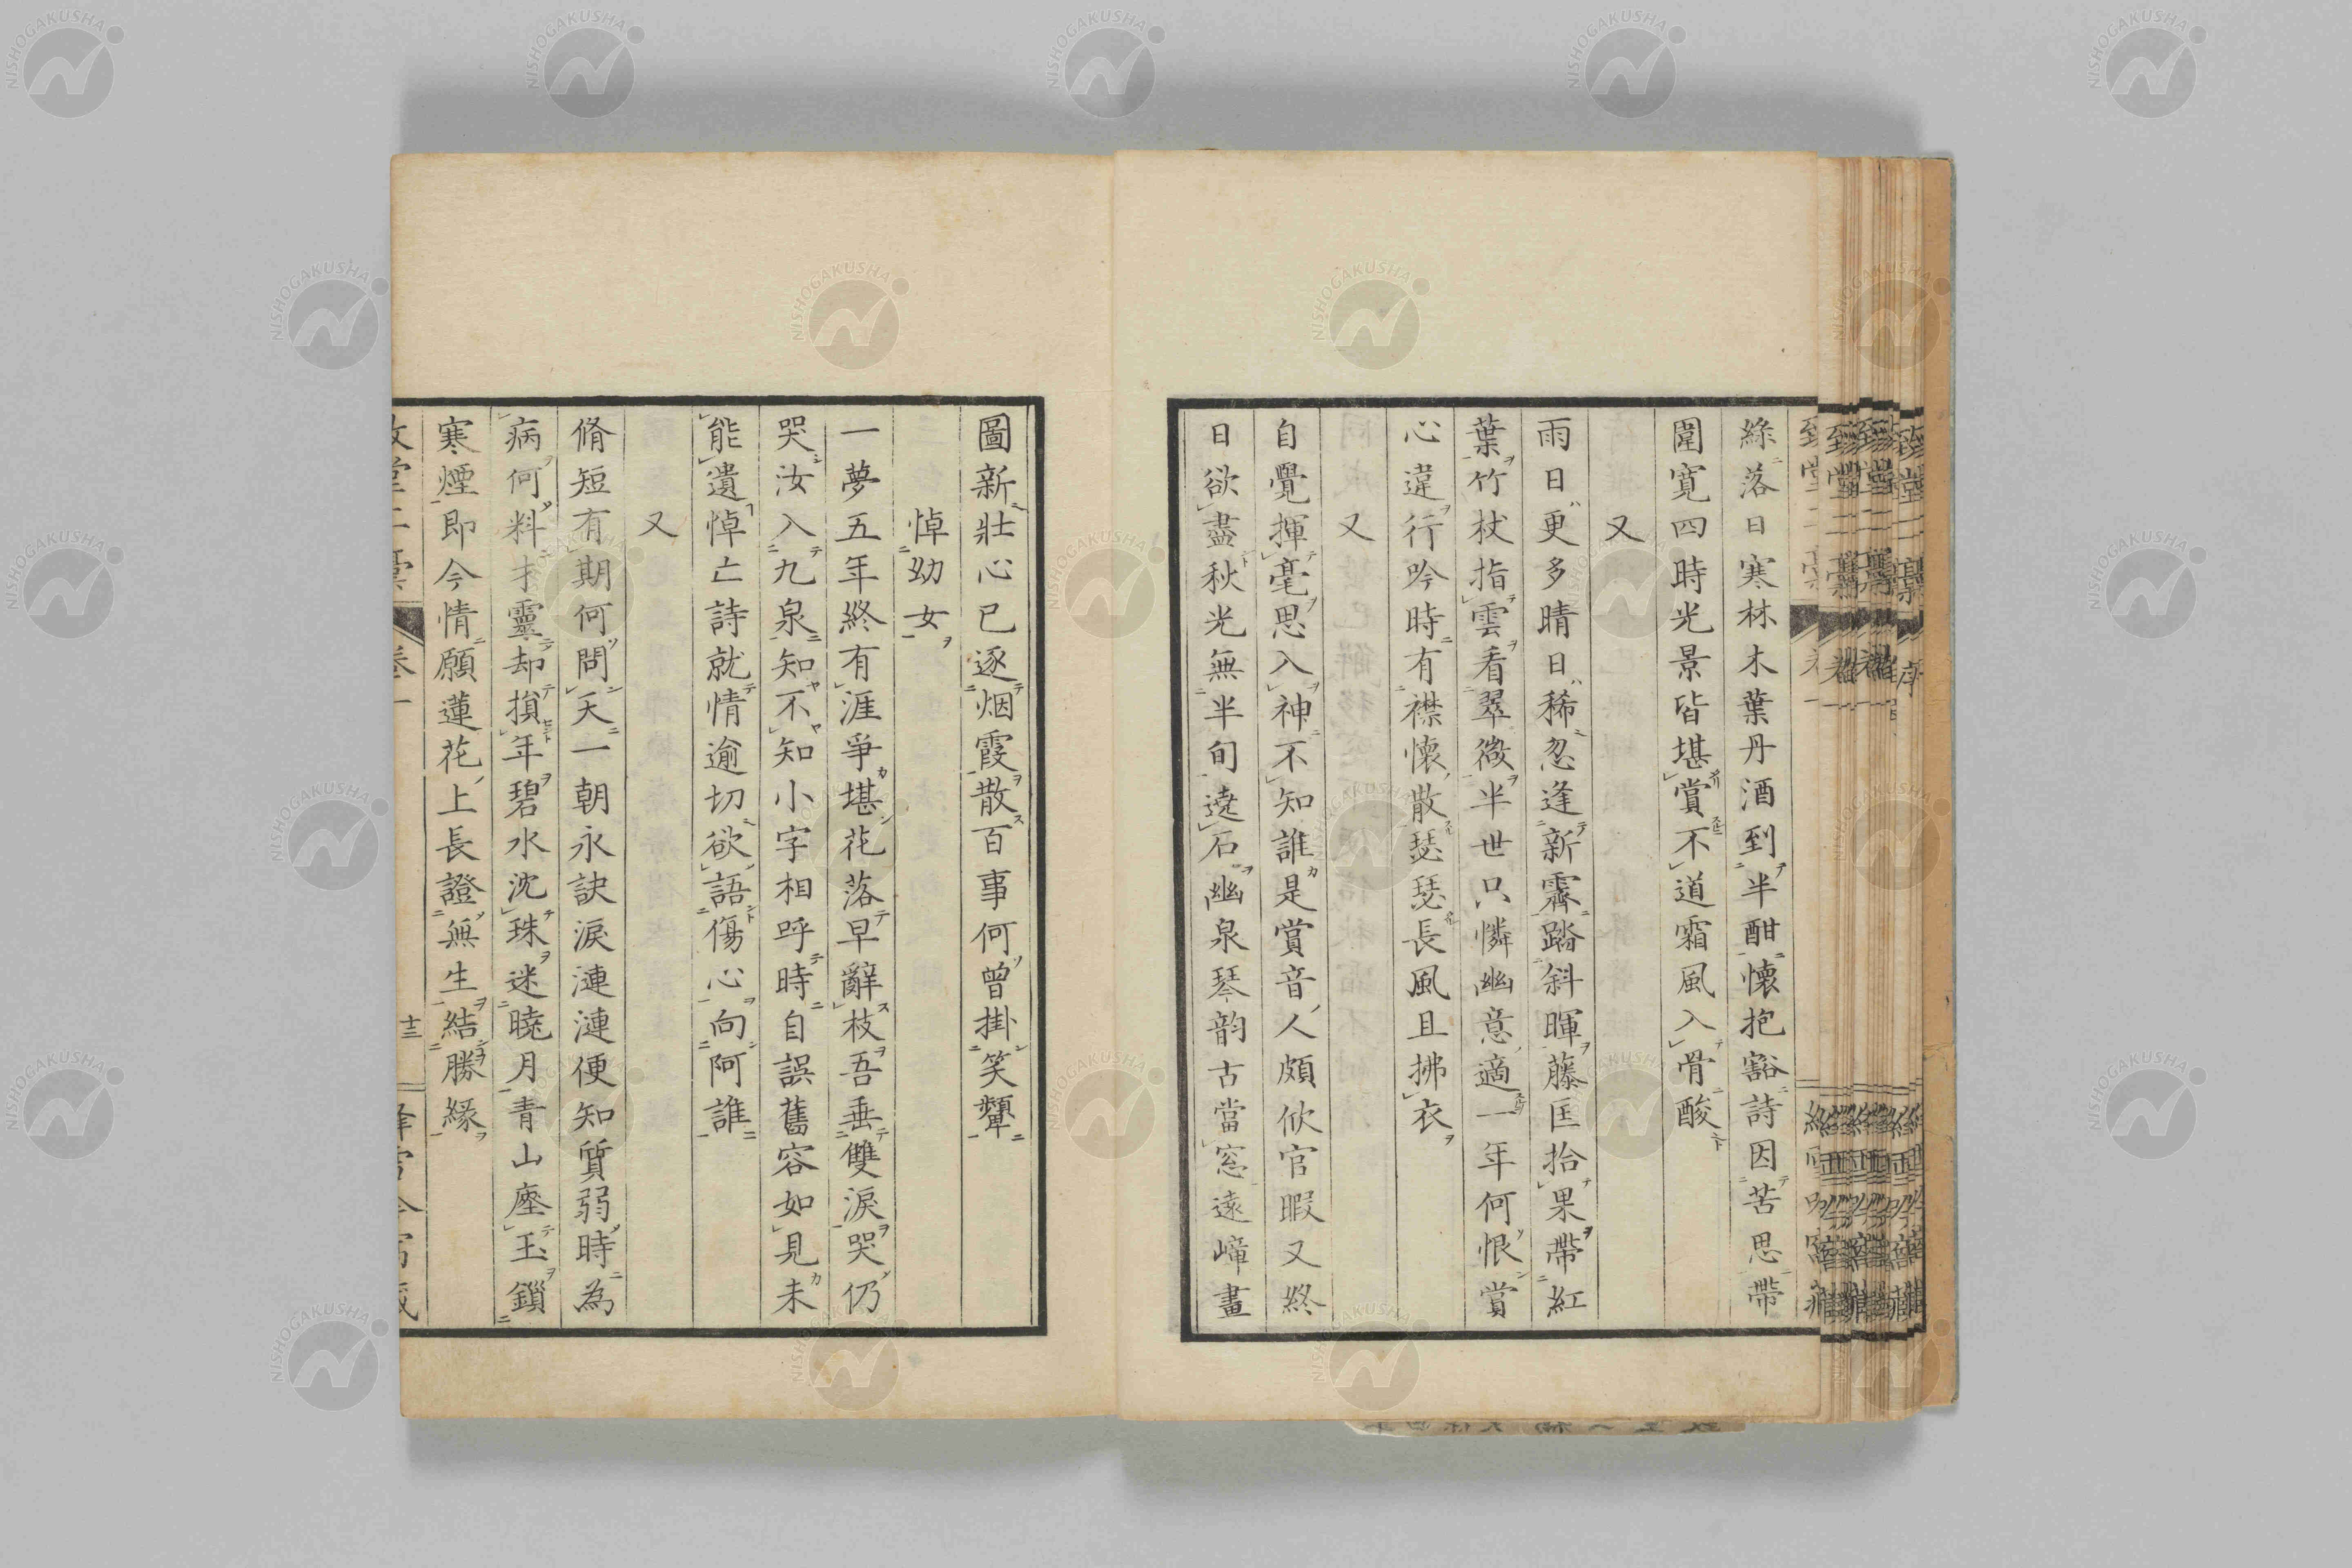 綠落日寒林木葉丹酒到半酣懷抱豁詩因苦思帶
圍寬四時光景皆堪賞不道霜風入骨酸
又
雨日更多晴日稀忽逢新霽踏斜暉藤匡拾果帶紅
葉竹杖指雲看翠微半世只憐幽意適一年何恨賞
心違行吟時有襟懷散瑟瑟長風且拂衣
又
自覺揮毫思入神不知誰是賞音人頗欣官暇又終
日欲盡秋光無半旬遶石幽泉琴韵古當窓遠嶂畫
圖新壯心已逐烟霞散百事何曾掛笑顰
悼幼女
一夢五年終有涯爭堪花落早辭枝吾垂雙淚哭仍
哭汝入九泉知不知小字相呼時自誤舊容如見未
能遺悼亡詩就情逾切欲語傷心向阿誰
又
脩短有期何問天一朝永訣淚漣漣便知質弱時為
病何料才靈却損年碧水沈珠迷曉月青山瘞玉鎖
寒煙即今情願蓮花上長證無生結勝緣
卷一
十三
NISHOGAKUSHA